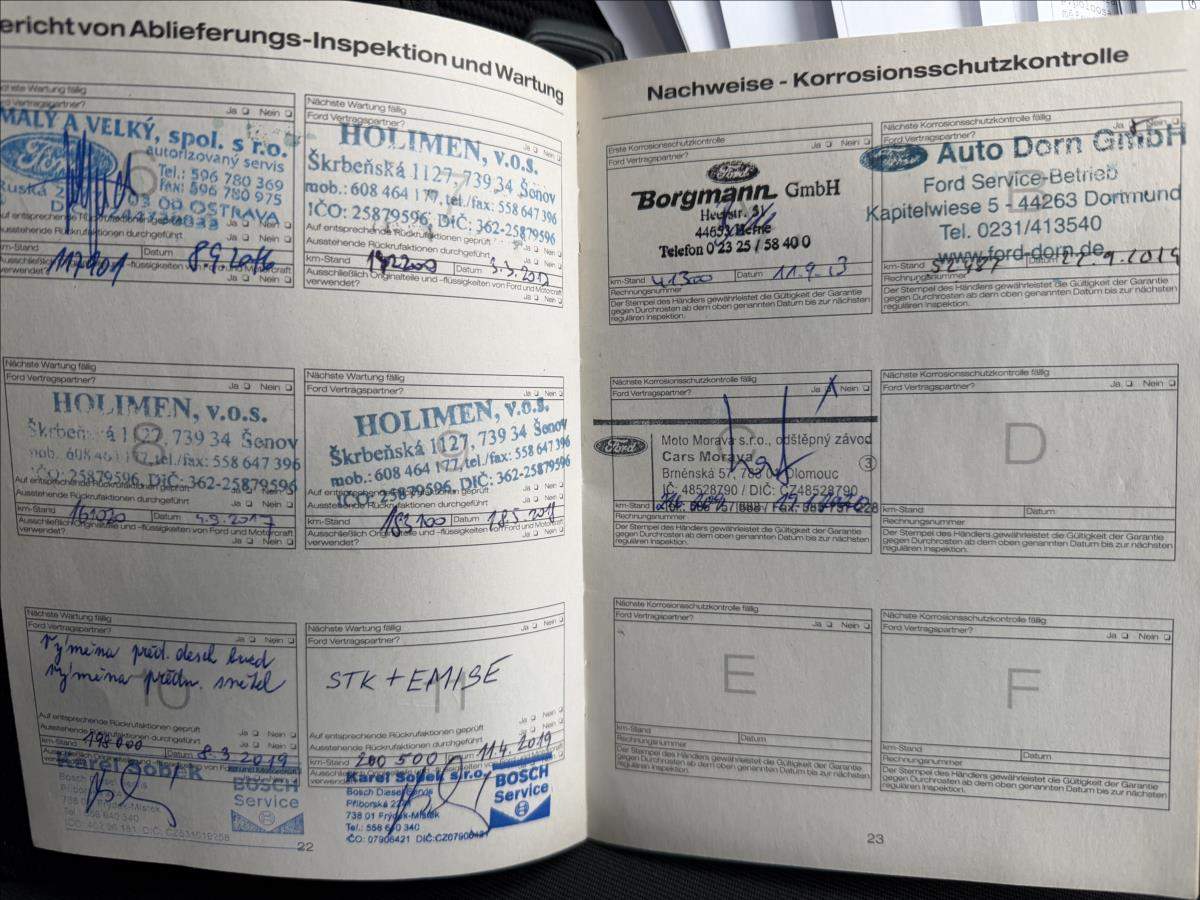 ericht von Ablieferungs-Inspektion und Wartung
Nächste Wartung fällig
Ja Nein
MALÝ A VELKÝ, spol. s r.o.
autorizovaný servis
Ford
Tel.: 596 780 369
Fax: 596 780 975
Ruská
03 00 OSTRAVA
6
Ausstehende Rückrufaktionen durchgeführt
Ja Nein
km-Stand 117901 Datum
Nächste Wartung fällig
Ford Vertragspartner? Ja Nein
HOLIMEN, v.o.s.
Škrbeňská 1127, 739 34 Šenov
mob.: 608 464 177, tel./fax: 558 647 396
IČO: 25879596, DIČ: 362-25879596
Auf entsprechende Rückrufaktionen geprüft
Ausstehende Rückrufaktionen durchgeführt
km-Stand Datum
Ausschließlich Originalteile und -flüssigkeiten von Ford und Motorcraft
verwendet? Ja Nein
Nächste Wartung fällig
Ford Vertragspartner? Ja Nein
HOLIMEN, v.o.s.
Škrbeňská 1127, 739 34 Šenov
mob.: 608 464 177, tel./fax: 558 647 396
IČO: 25879596, DIČ: 362-25879596
8
Ausstehende Rückrufaktionen durchgeführt
km-Stand 161020 Datum 4.9.2017
Ausschließlich Originalteile und -flüssigkeiten von Ford und Motorcraft
verwendet? Ja Nein
Nächste Wartung fällig
Ford Vertragspartner? Ja Nein
HOLIMEN, v.o.s.
Škrbeňská 1127, 739 34 Šenov
mob.: 608 464 177, tel./fax: 558 647 396
IČO: 25879596, DIČ: 362-25879596
9
km-Stand Datum
Ausschließlich Originalteile und -flüssigkeiten von Ford und Motorcraft
verwendet? Ja Nein
Nächste Wartung fällig
Ford Vertragspartner? Ja Nein
výměna před.
výměna předn.
10
Auf entsprechende Rückrufaktionen geprüft
Ausstehende Rückrufaktionen durchgeführt
km-Stand 198000 Datum 8.3.2019
Karel Sobek
BOSCH
Service
738 01 Frýdek-Místek
Nächste Wartung fällig
Ford Vertragspartner? Ja Nein
STK + EMISE
11
Auf entsprechende Rückrufaktionen geprüft
Ausstehende Rückrufaktionen durchgeführt
km-Stand 200 500 Datum 11.4.2019
Karel Sobek s.r.o.
Bosch Diesel Servis
738 01 Frýdek-Místek
Tel.: 558 640 340
IČO: 07906421 DIČ:CZ07906421
BOSCH
Service
22
Nachweise - Korrosionsschutzkontrolle
Erste Korrosionskontrolle
Ford Vertragspartner? Ja Nein
Ford
Borgmann GmbH
44653 Herne
Telefon 0 23 25 / 58 40 0
km-Stand 41300 Datum 11.9.13
Rechnungsnummer
Der Stempel des Händlers gewährleistet die Gültigkeit der Garantie
gegen Durchrosten ab dem oben genannten Datum bis zur nächsten
regulären Inspektion.
Nächste Korrosionsschutzkontrolle fällig
Ford Vertragspartner? Ja Nein
Ford
Auto Dorn GmbH
Ford Service-Betrieb
Kapitelwiese 5 - 44263 Dortmund
Tel. 0231/413540
www.ford-dorn.de
km-Stand
Rechnungsnummer
Der Stempel des Händlers gewährleistet die Gültigkeit der Garantie
gegen Durchrosten ab dem oben genannten Datum bis zur nächsten
regulären Inspektion.
Nächste Korrosionsschutzkontrolle fällig
Ford Vertragspartner? Ja Nein
Ford
Moto Morava s.r.o., odštěpný závod
Cars Morava
Brněnská 57, Olomouc
3
IČ: 48528790 / DIČ: CZ48528790
km-Stand
Rechnungsnummer
Der Stempel des Händlers gewährleistet die Gültigkeit der Garantie
gegen Durchrosten ab dem oben genannten Datum bis zur nächsten
regulären Inspektion.
Nächste Korrosionsschutzkontrolle fällig
Ford Vertragspartner? Ja Nein
D
km-Stand Datum
Rechnungsnummer
Der Stempel des Händlers gewährleistet die Gültigkeit der Garantie
gegen Durchrosten ab dem oben genannten Datum bis zur nächsten
regulären Inspektion.
Nächste Korrosionsschutzkontrolle fällig
Ford Vertragspartner? Ja Nein
E
km-Stand Datum
Rechnungsnummer
Der Stempel des Händlers gewährleistet die Gültigkeit der Garantie
gegen Durchrosten ab dem oben genannten Datum bis zur nächsten
regulären Inspektion.
Nächste Korrosionsschutzkontrolle fällig
Ford Vertragspartner? Ja Nein
F
km-Stand Datum
Rechnungsnummer
Der Stempel des Händlers gewährleistet die Gültigkeit der Garantie
gegen Durchrosten ab dem oben genannten Datum bis zur nächsten
regulären Inspektion.
23